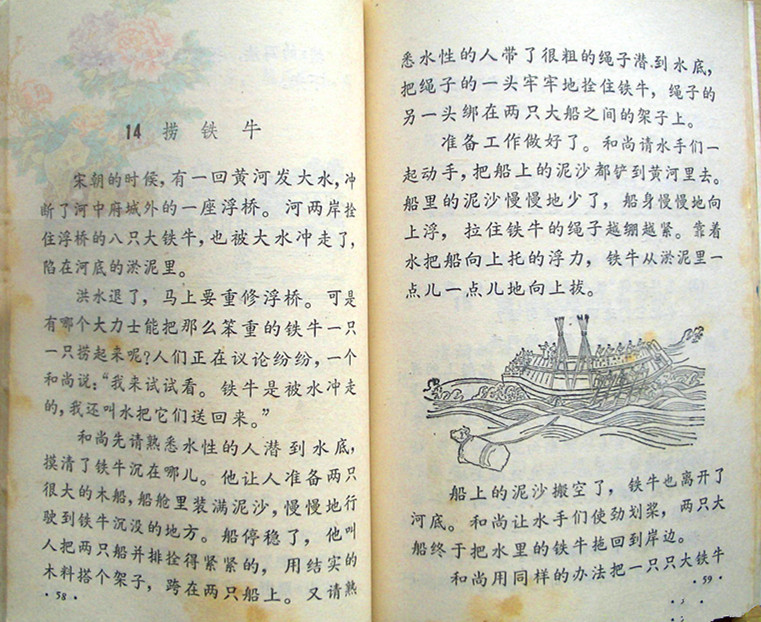 14 捞铁牛
宋朝的时候，有一回黄河发大水，冲
断了河中府城外的一座浮桥。河两岸拴
住浮桥的八只大铁牛，也被大水冲走了，
陷在河底的淤泥里。
洪水退了，马上要重修浮桥。可是
有哪个大力士能把那么笨重的铁牛一只
一只捞起来呢？人们正在议论纷纷，一个
和尚说：“我来试试看。铁牛是被水冲走
的，我还叫水把它们送回来。”
和尚先请熟悉水性的人潜到水底，
摸清了铁牛沉在哪儿。他让人准备两只
很大的木船，船舱里装满泥沙，慢慢地行
驶到铁牛沉没的地方。船停稳了，他叫
人把两只船并排拴得紧紧的，用结实的
木料搭个架子，跨在两只船上。又请熟
·58·
悉水性的人带了很粗的绳子潜到水底，
把绳子的一头牢牢地拴住铁牛，绳子的
另一头绑在两只大船之间的架子上。
准备工作做好了。和尚请水手们一
起动手，把船上的泥沙都铲到黄河里去。
船里的泥沙慢慢地少了，船身慢慢地向
上浮，拉住铁牛的绳子越绷越紧。靠着
水把船向上托的浮力，铁牛从淤泥里一
点儿一点儿地向上拔。
船上的泥沙搬空了，铁牛也离开了
河底。和尚让水手们使劲划桨，两只大
船终于把水里的铁牛拖回到岸边。
和尚用同样的办法把一只只大铁牛
·59·